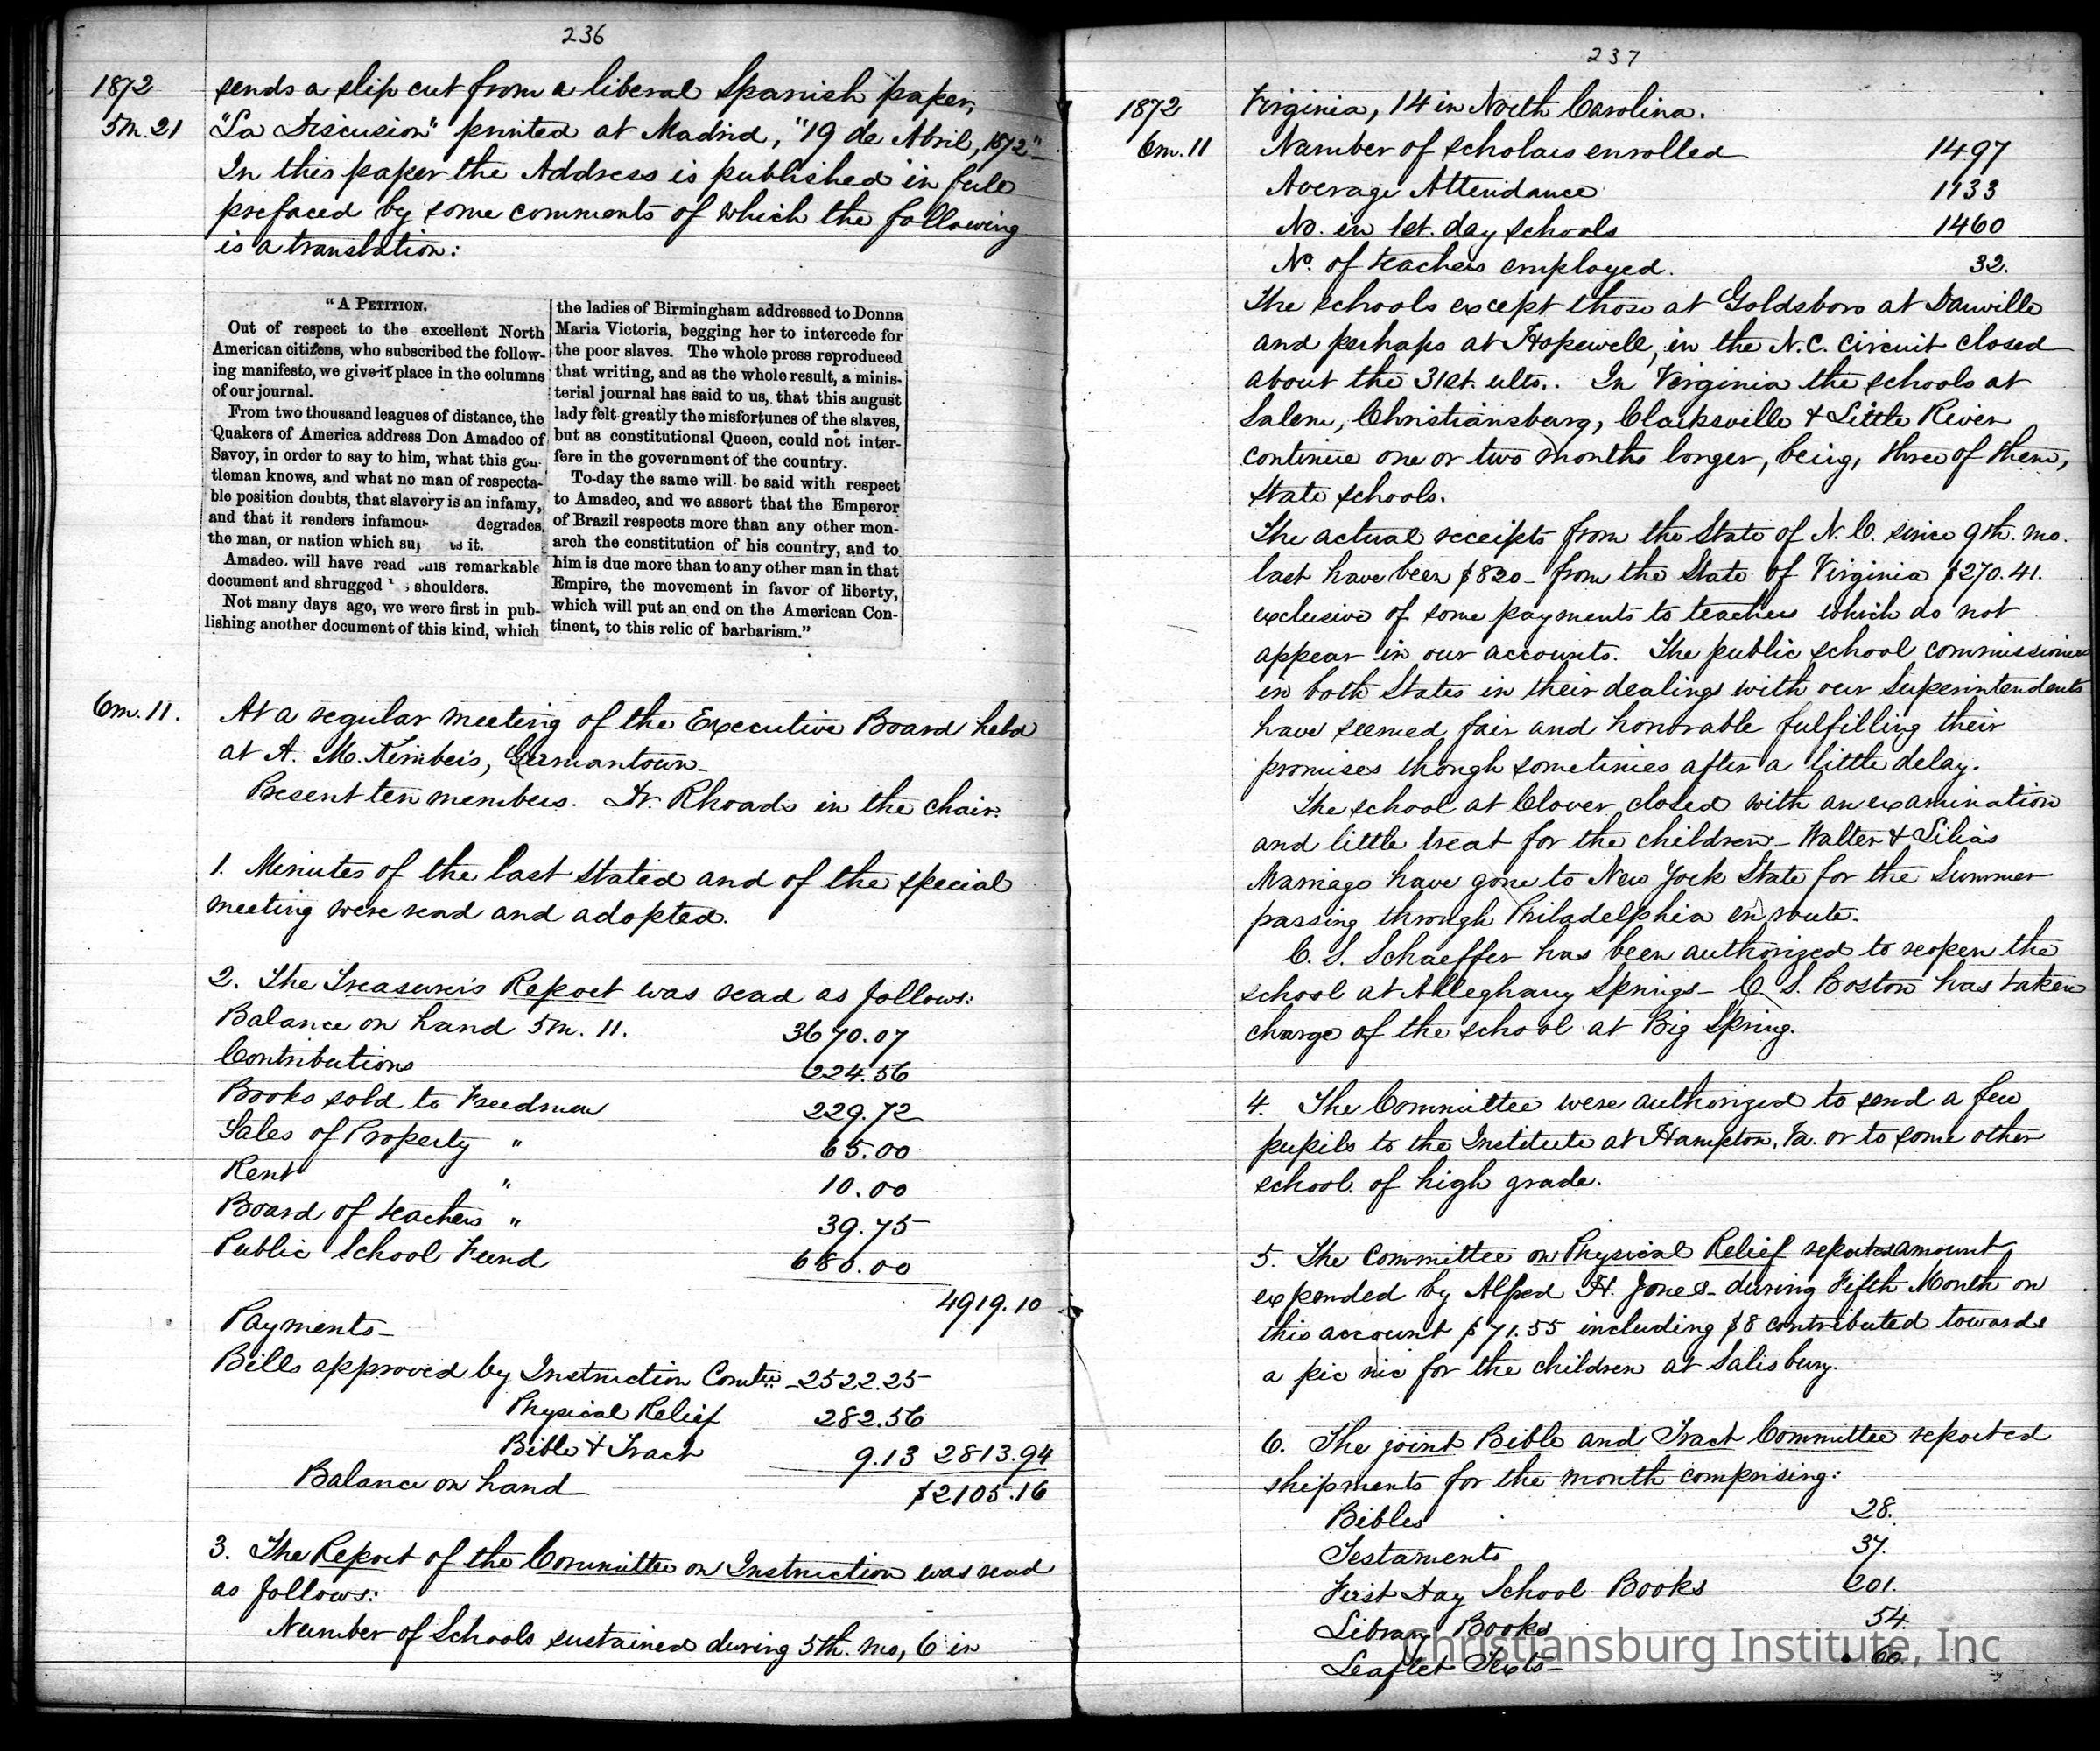 236
1872
sends a slip cut from a liberal Spanish paper,
5m. 21
"La Discusion" printed at Madrid, "19 de Abril, 1872"_
In this paper the Address is published in full
prefaced by some comments of which the following
is a translation:
"A PETITION.
Out of respect to the excellent North
American citizens, who subscribed the follow-
ing manifesto, we give it place in the columns
of our journal.
From two thousand leagues of distance, the
Quakers of America address Don Amadeo of
Savoy, in order to say to him, what this gen-
tleman knows, and what no man of respecta-
ble position doubts, that slavery is an infamy,
and that it renders infamous degrades,
the man, or nation which it.
Amadeo. will have read this remarkable
document and shrugged shoulders.
Not many days ago, we were first in pub-
lishing another document of this kind, which
the ladies of Birmingham addressed to Donna
Maria Victoria, begging her to intercede for
the poor slaves. The whole press reproduced
that writing, and as the whole result, a minis-
terial journal has said to us, that this august
lady felt greatly the misfortunes of the slaves,
but as constitutional Queen, could not inter-
fere in the government of the country.
To-day the same will be said with respect
to Amadeo, and we assert that the Emperor
of Brazil respects more than any other mon-
arch the constitution of his country, and to
him is due more than to any other man in that
Empire, the movement in favor of liberty,
which will put an end on the American Con-
tinent, to this relic of barbarism."
6m. 11.
At a regular meeting of the Executive Board held
at A. M. Kimber's, Germantown_
Present ten members. Dr. Rhoads in the chair.
1. Minutes of the last stated and of the special
meeting were read and adopted.
2. The Treasurer's Report was read as follows:
Balance on hand 5m. 11. 3670.07
Contributions 224.56
Books sold to Freedmen 229.72
Sales of Property " 65.00
Rent " 10.00
Board of teachers " 39.75
Public School Fund 680.00
4919.10
Payments_
Bills approved by Instruction Comtee _2522.25
Physical Relief 282.56
Bible & Tract 9.13 2813.94
Balance on hand $2105.16
3. The Report of the Committee on Instruction was read
as follows:
Number of Schools sustained during 5th. mo, 6 in
237
1872
Virginia, 14 in North Carolina.
6m. 11
Number of scholars enrolled 1497
Average Attendance 1133
No. in 1st. day schools 1460
No. of teachers employed. 32.
The schools except those at Goldsboro at Danville
and perhaps at Hopewell, in the N.C. Circuit closed
about the 31st. ulto.. In Virginia the schools at
Salem, Christiansburg, Clarksville & Little River
continue one or two months longer, being, three of them,
State schools.
The actual receipts from the State of N. C. since 9th. mo.
last have been $820_ from the State of Virginia $270.41.
exclusive of some payments to teachers which do not
appear in our accounts. The public school commissioners
in both States in their dealings with our Superintendents
have seemed fair and honorable fulfilling their
promises though sometimes after a little delay.
The school at Clover closed with an examination
and little treat for the children_ Walter & Lilias
Marriage have gone to New York State for the Summer
passing through Philadelphia en route.
C. S. Schaeffer has been authorized to reopen the
school at Alleghany Springs_ C. S. Boston has taken
charge of the school at Big Spring.
4. The Committee were authorized to send a few
pupils to the Institute at Hampton, Va. or to some other
school of high grade.
5. The Committee on Physical Relief reports amount
expended by Alfred H. Jones_ during Fifth Month on
this account $71.55 including $8 contributed towards
a pic nic for the children at Salisbury.
6. The joint Bible and Tract Committee reported
shipments for the month comprising:
Bibles 28.
Testaments 37.
First Day School Books 201.
Library Books 54.
Leaflet Texts_ 60
Christiansburg Institute, Inc